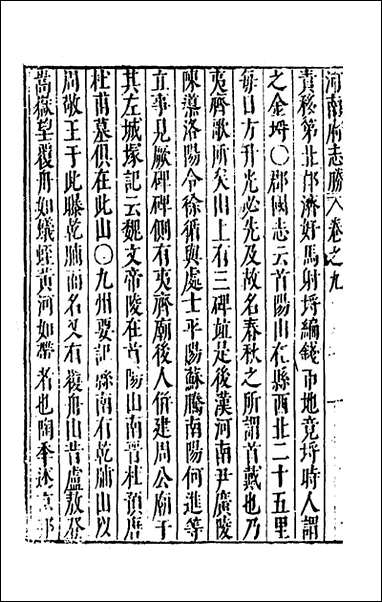 河南府志勝 卷之九
責移第北邙濟好馬射埒編錢币地竟埒時人謂
之金埒○郡國志云首陽山在縣西北二十五里
每日方升光必先及故名春秋之所謂首戴也乃
夷齊歌所矣山上有三碑竝是後漢河南尹廣陵
陳導洛陽令徐循與處士平陽蘇騰南陽何進等
立事見厥碑碑側有夷齊廟後人併建周公廟于
其左城塚記云魏文帝陵在首陽山南晉杜預唐
杜甫墓俱在此山○九州要記縣南有乾脯山以
周敬王于此曝乾脯而名又有覆舟山昔盧敖登
嵩嶽望覆舟如蟻蛭黃河如帶者也陶季述京邦